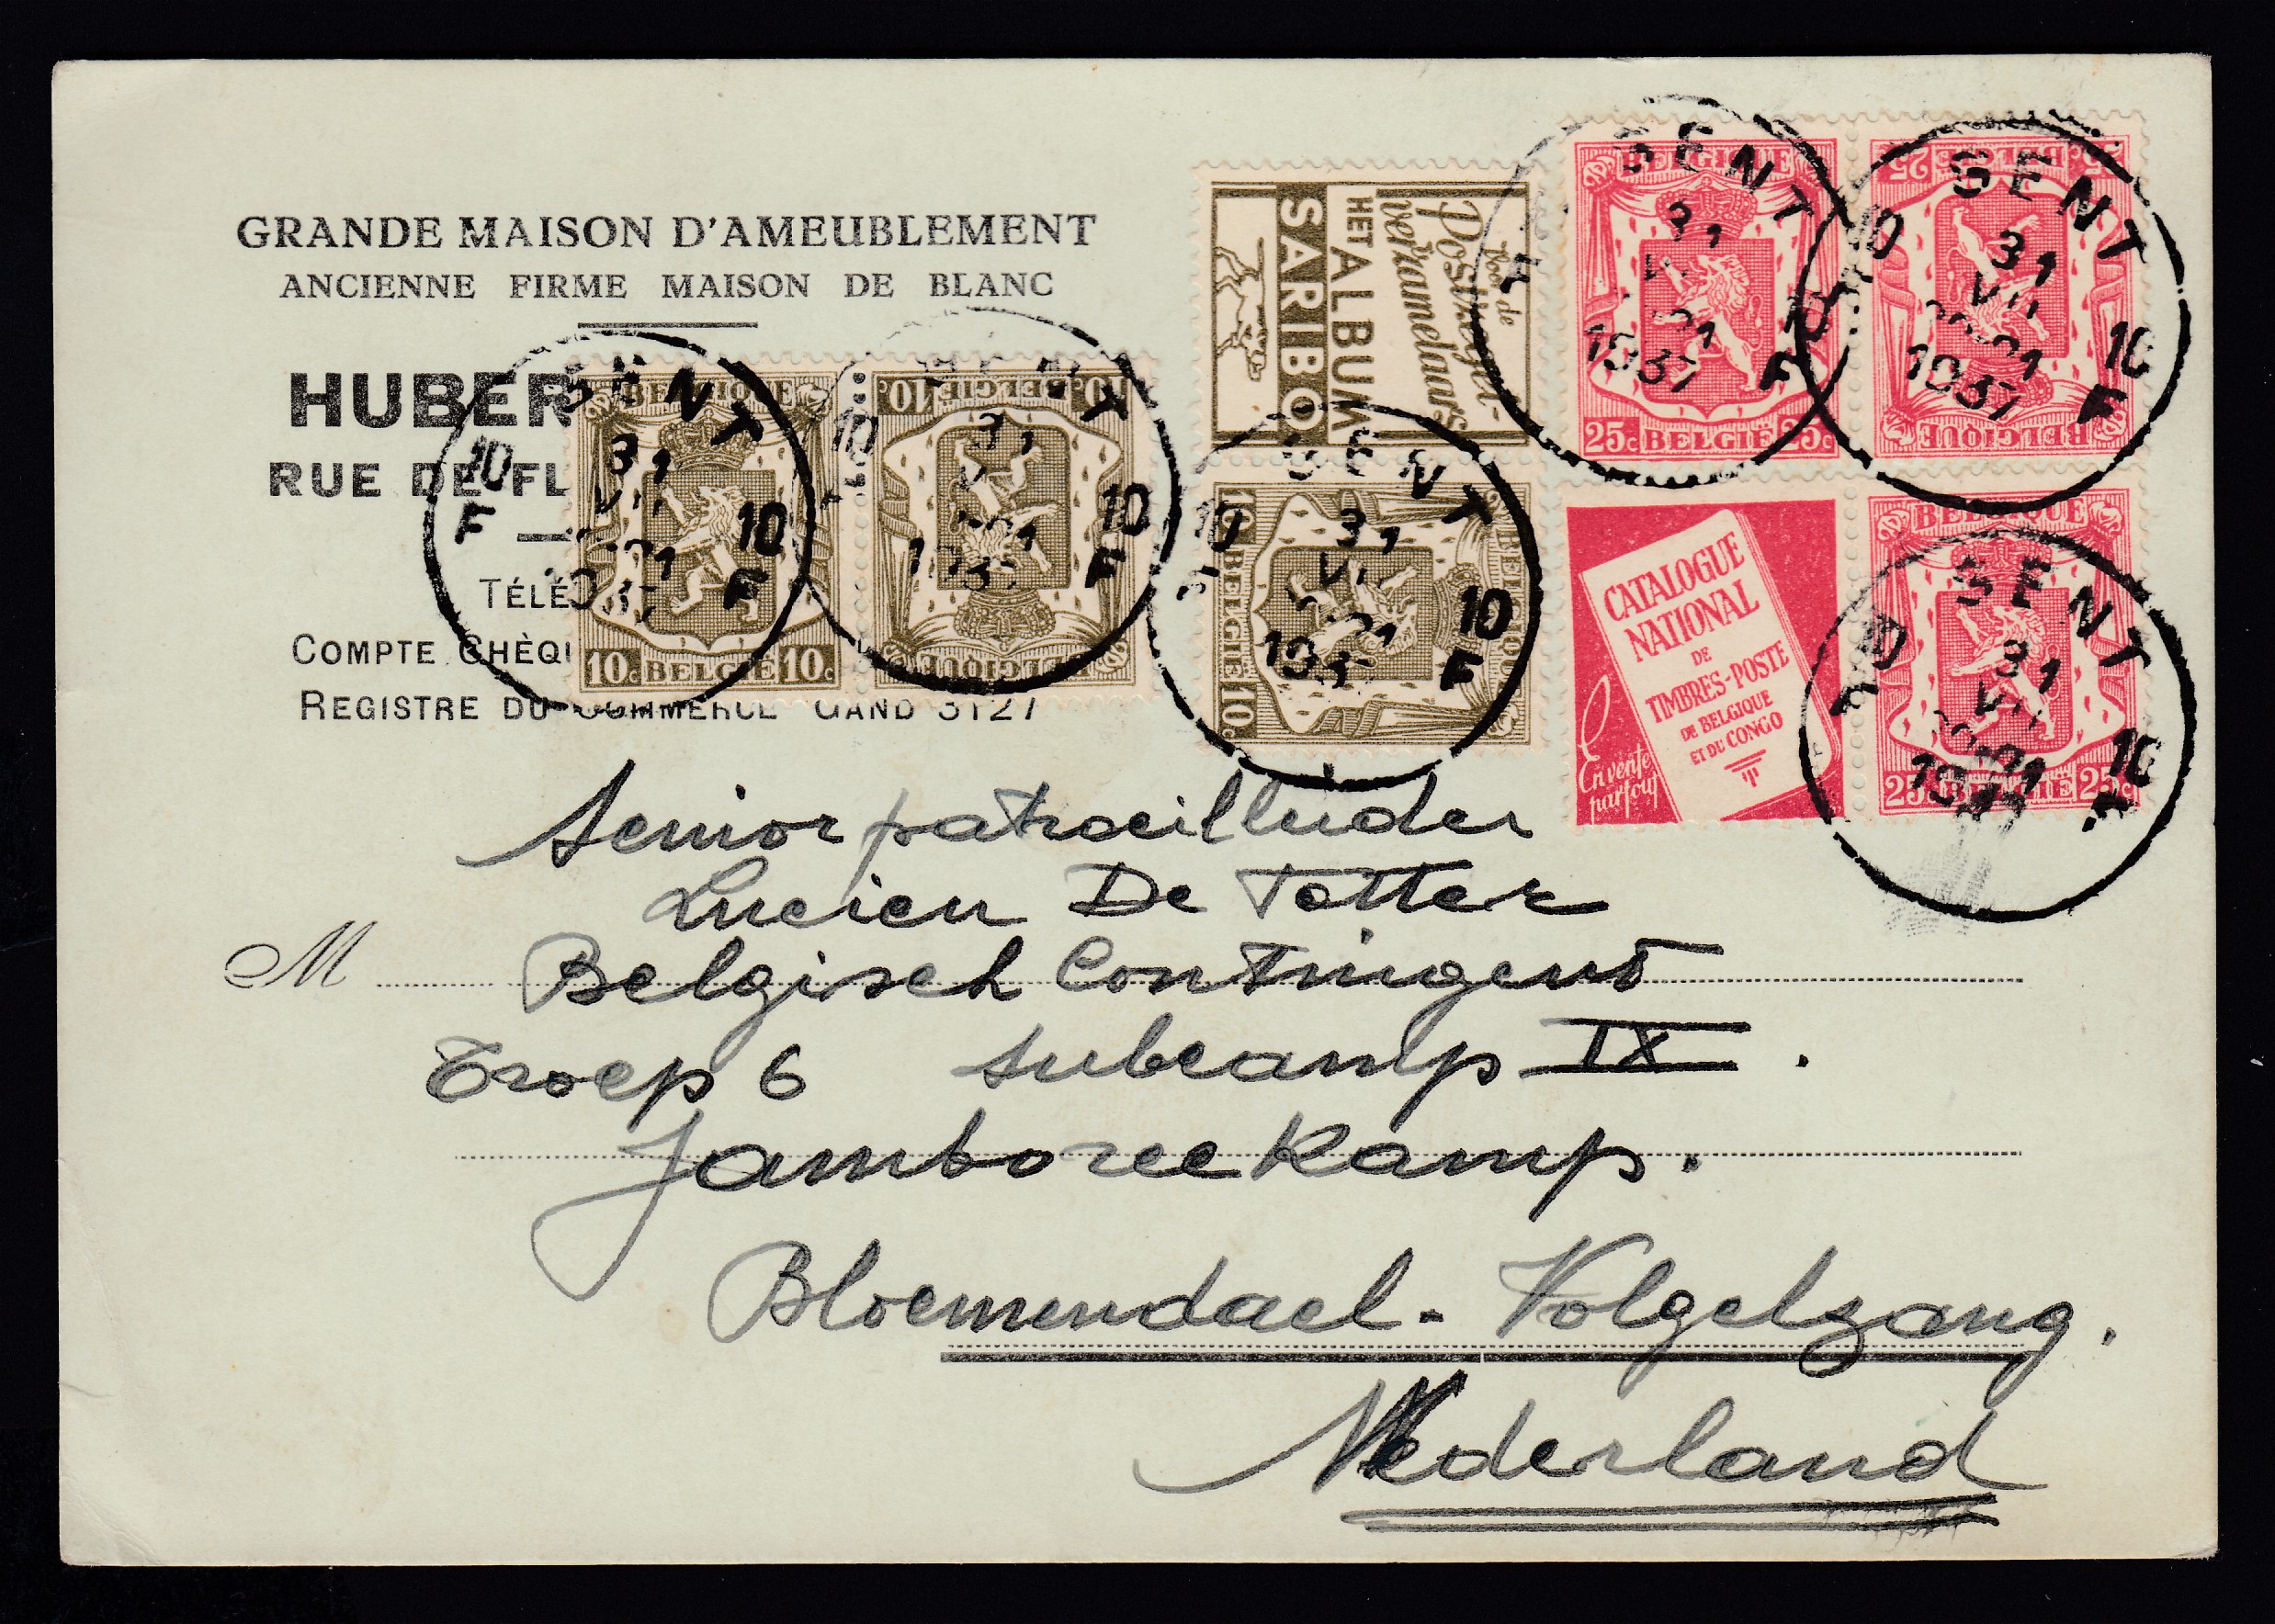 GRANDE MAISON D'AMEUBLEMENT
ANCIENNE FIRME MAISON DE BLANC
HUBER
RUE DE FL
TÉLÉ
COMPTE CHÈQU
REGISTRE DU COMMERCE GAND 3127
GENT
31
VII
1937
10
F
BELGIQUE
10c BELGIË 10c
GENT
31
1937
10
F
BELGIQUE
10c BELGIË 10c
Voor de
Postzegel-
verzaamelaars
HET ALBUM
SARIBO
GENT
31
VII
10
F
BELGIQUE
10c BELGIË 10c
GENT
31
1937
10
F
BELGIQUE
25c BELGIË 25c
GENT
31
VII
1937
10
F
BELGIQUE
25c BELGIË 25c
CATALOGUE
NATIONAL
DE
TIMBRES-POSTE
DE BELGIQUE
ET DU CONGO
En vente
partout
GENT
31
VII
1937
10
F
BELGIQUE
25c BELGIË 25c
Seniorpatroeilluder
Lucien De Potter
M Belgisch Contingent
Troep 6 subcamp IX.
Jamboree Kamp.
Bloemendael - Volgelzang.
Nederland